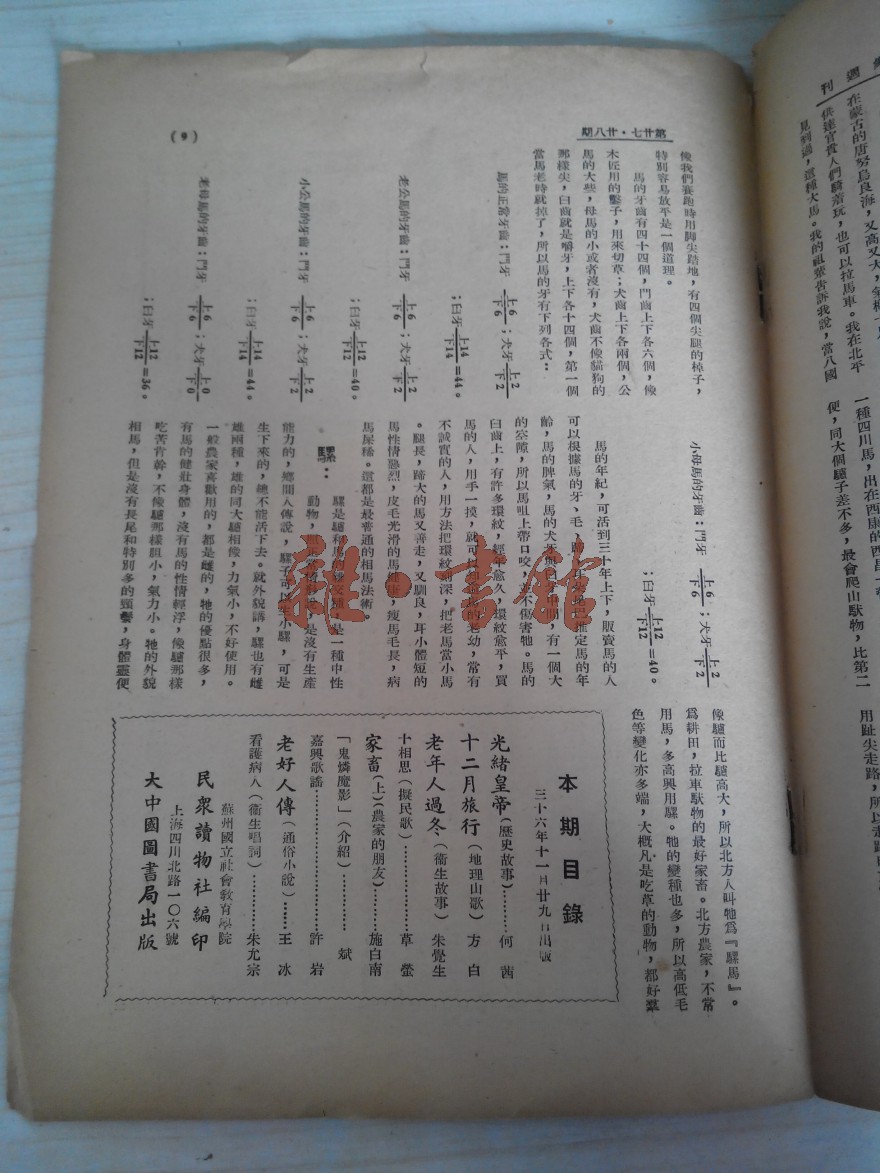 第廿七・廿八期
(9)
像我們賽跑時用脚尖踏地，有四個尖腿的棹子，
特別容易放平是一個道理。
馬的牙齒有四十四個，門齒上下各六個，像
木匠用的鑿子，用來切草；犬齒上下各兩個，公
馬的大些，母馬的小或者沒有，犬齒不像貓狗的
那樣尖，臼齒就是嚼牙，上下各十四個，第一個
當馬老時就掉了，所以馬的牙有下列各式：
馬的正常牙齒：門牙 上6/下6；犬牙 上2/下2
；臼牙 上14/下14=44。
老公馬的牙齒：門牙 上6/下6；犬牙 上2/下2
；臼牙 上12/下12=40。
小公馬的牙齒：門牙 上6/下6；犬牙 上2/下2
；臼牙 上14/下14=44。
老母馬的牙齒：門牙 上6/下6；犬牙 上0/下0
；臼牙 上12/下12=36。
小母馬的牙齒：門牙 上6/下6；犬牙 上2/下2
；臼牙 上12/下12=40。
馬的年紀，可活到三十年上下，販賣馬的人
可以根據馬的牙、毛、推定馬的年
齡，馬的脾氣，馬的犬牙與臼牙中間，有一個大
的空隙，所以馬咀上帶口咬，並不傷害牠。馬的
臼齒上，有許多環紋，經年愈久，環紋愈平，買
馬的人，用手一摸，就可以知道馬的老幼，常有
不誠實的人，用方法把環紋刻深，把老馬當小馬
。腿長，蹄大的馬又善走，又馴良，耳小體短的
馬性情憨烈，皮毛光滑的馬健康，瘦馬毛長，病
馬尿稀。這都是最普通的相馬法術。
騾：
騾是驢和馬的雜交種，是一種中性
動物，是沒有生產
能力的，鄉間人傳說，騾子可以生小騾，可是
生下來的，總不能活下去。就外貌講，騾也有雌
雄兩種，雄的同大驢相像，力氣小，不好使用。
一般農家喜歡用的，都是雌的，牠的優點很多，
有馬的健壯身體，沒有馬的性情輕浮，像驢那樣
吃苦肯幹，不像驢那樣胆小，氣力小。牠的外貌
相馬，但是沒有長尾和特別多的頸鬃，身體靈便
像驢而比驢高大，所以北方人叫牠爲『騾馬』。
爲耕田，拉車馱物的最好家畜。北方農家，不常
用馬，多高興用騾。牠的變種也多，所以高低毛
色等變化亦多端，大概凡是吃草的動物，都好羣
本期目錄
三十六年十一月廿九日出版
光緒皇帝（歷史故事）………何茜
十二月旅行（地理山歌）方白
老年人過冬（衞生故事）朱覺生
十相思（擬民歌）…………草螢
家畜（上）（農家的朋友）……施白南
「鬼憐魔影」（介紹）……斌
嘉興歌謠…………………許岩
老好人傳（通俗小說）……王冰
看護病人（衞生唱詞）………朱尤宗
蘇州國立社會教育學院
民衆讀物社編印
上海四川北路一〇六號
大中國圖書局出版
週刊
在蒙古的唐努烏良海，又高又大，
供達官貴人們騎着玩，也可以拉馬車。我在北平
見到過，這種大馬。我的祖輩告訴我說，當八國
一種四川馬，出在西康的西昌一
便，同大個驢子差不多，最會爬山馱物，比第二
用趾尖走路，所以走路
雜・書館